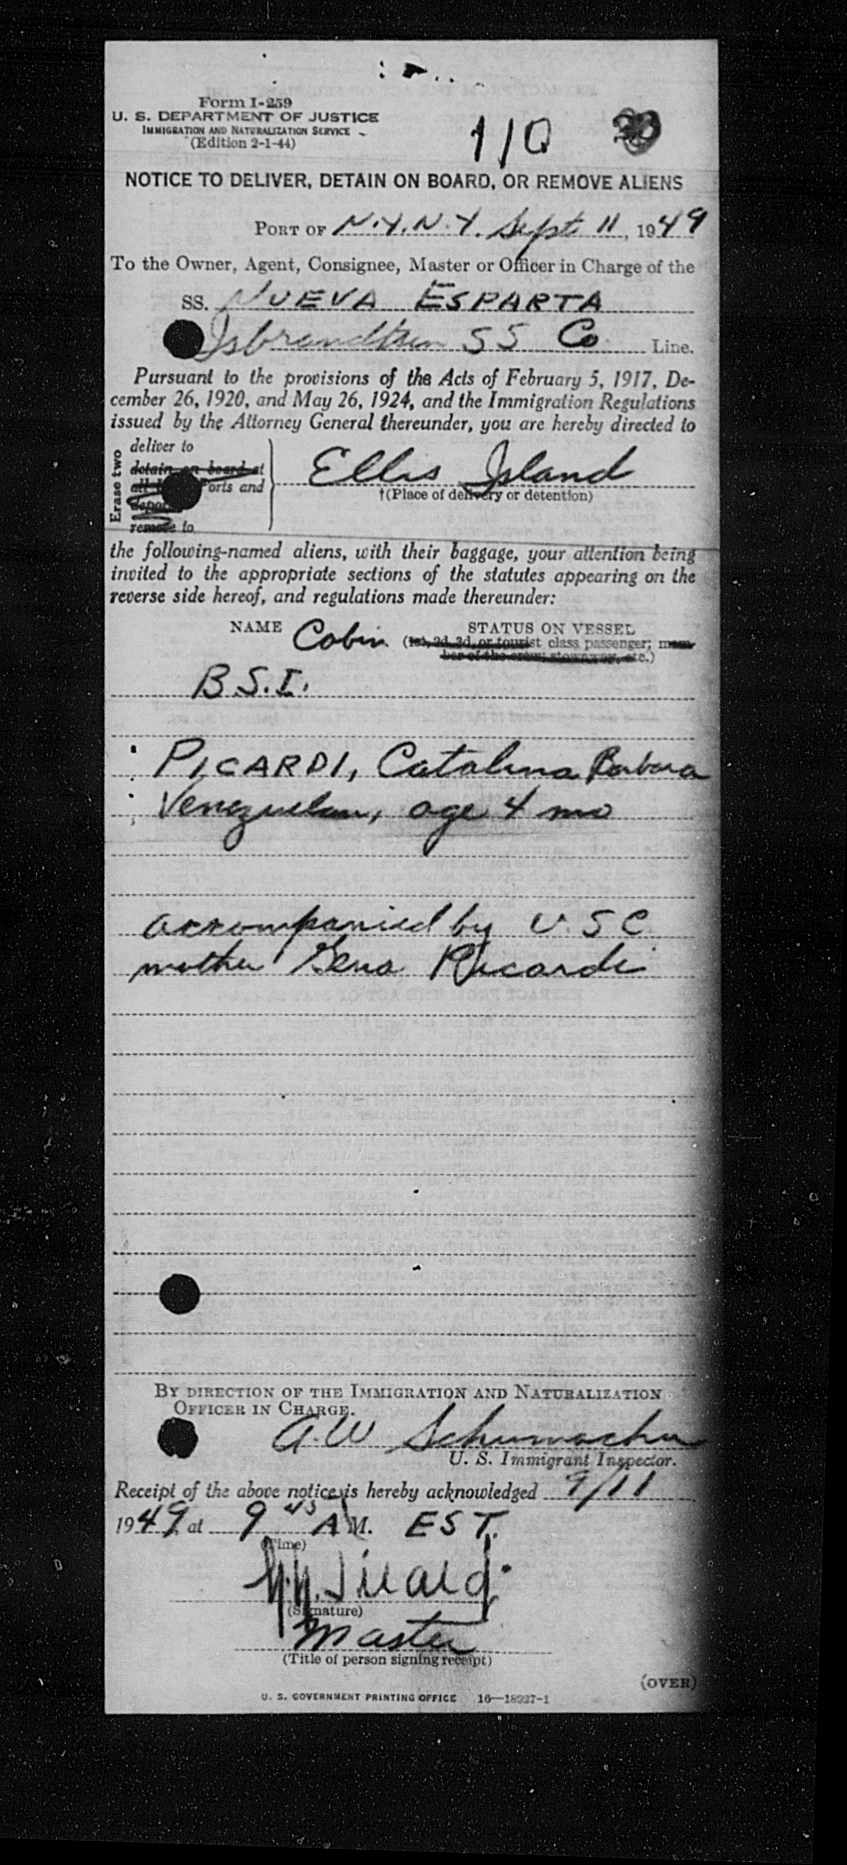 Form I-259
U. S. DEPARTMENT OF JUSTICE
IMMIGRATION AND NATURALIZATION SERVICE
(Edition 2-1-44)
1/0
NOTICE TO DELIVER, DETAIN ON BOARD, OR REMOVE ALIENS
PORT OF N.Y.N.Y. Sept 11, 1949
To the Owner, Agent, Consignee, Master or Officer in Charge of the
SS. NUEVA ESPARTA
Isbrandtsen SS Co. Line.
Pursuant to the provisions of the Acts of February 5, 1917, De-
cember 26, 1920, and May 26, 1924, and the Immigration Regulations
issued by the Attorney General thereunder, you are hereby directed to
Erase two
deliver to
detain on board at
all ports and
remove to
Ellis Island
†(Place of delivery or detention)
the following-named aliens, with their baggage, your attention being
invited to the appropriate sections of the statutes appearing on the
reverse side hereof, and regulations made thereunder:
NAME Cabin STATUS ON VESSEL
(1st, 2d, 3d, or tourist class passenger; mem-
ber of the crew, stowaway, etc.)
B.S.I.
PICARDI, Catalina Barbara
Venezuelan, age 4 mo
accompanied by U S C
mother Gena Picardi
BY DIRECTION OF THE IMMIGRATION AND NATURALIZATION
OFFICER IN CHARGE.
A.W Schumacher
U. S. Immigrant Inspector.
Receipt of the above notice is hereby acknowledged 9/11
1949 at 9 45 A M. EST.
(Time)
(Signature)
Master
(Title of person signing receipt)
(OVER)
U. S. GOVERNMENT PRINTING OFFICE 16—18927-1